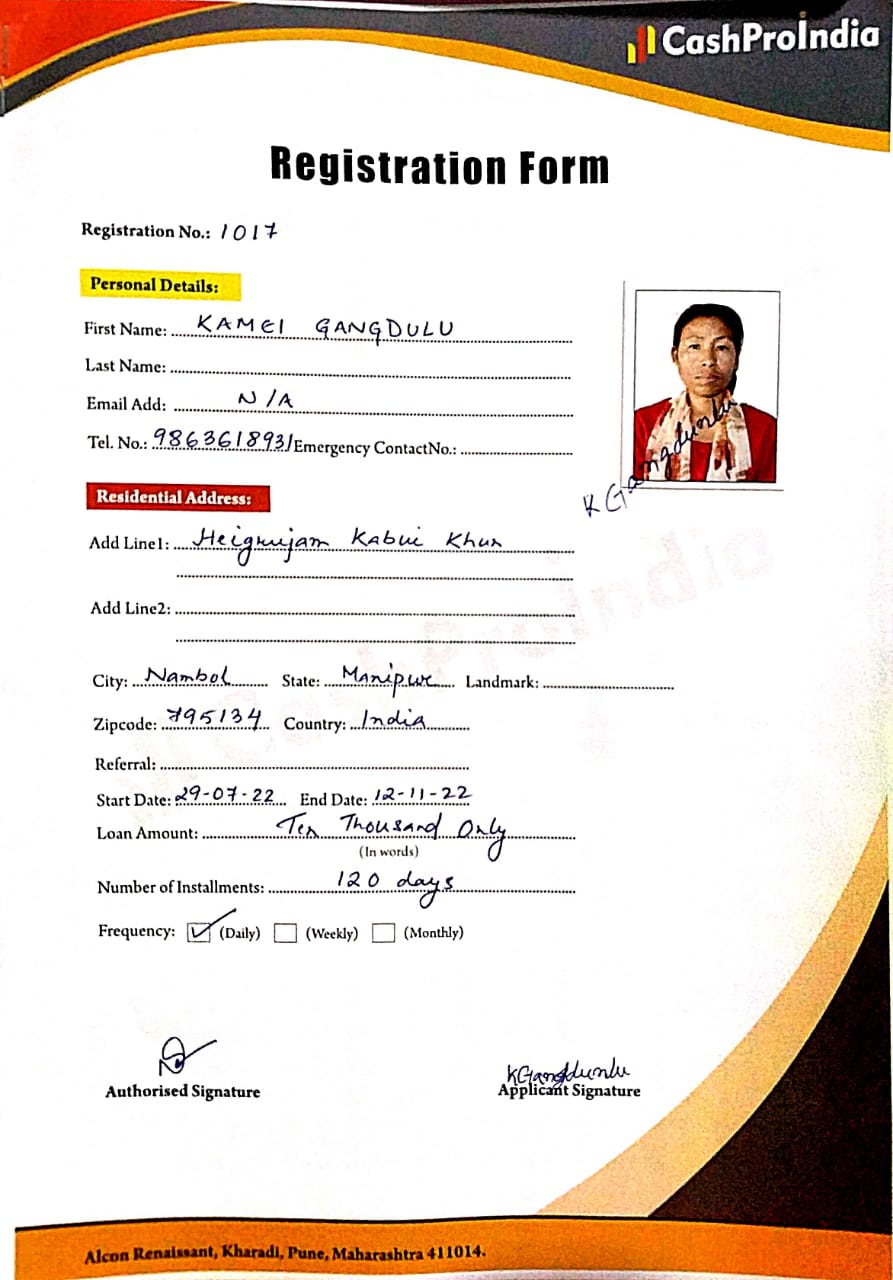 CashProIndia
Registration Form
Registration No.: 1017
Personal Details:
First Name: KAMEI GANGDULU
Last Name:
Email Add: N/A
Tel. No.: 9863618931 Emergency ContactNo.:
K Gangdunlu
Residential Address:
Add Line1: Heignujam Kabui Khun
Add Line2:
City: Nambol State: Manipur Landmark:
Zipcode: 795134 Country: India
Referral:
Start Date: 29-07-22 End Date: 12-11-22
Loan Amount: Ten Thousand Only
(In words)
Number of Installments: 120 days
Frequency: (Daily) (Weekly) (Monthly)
KGangdunlu
Authorised Signature Applicant Signature
Alcon Renaissant, Kharadi, Pune, Maharashtra 411014.